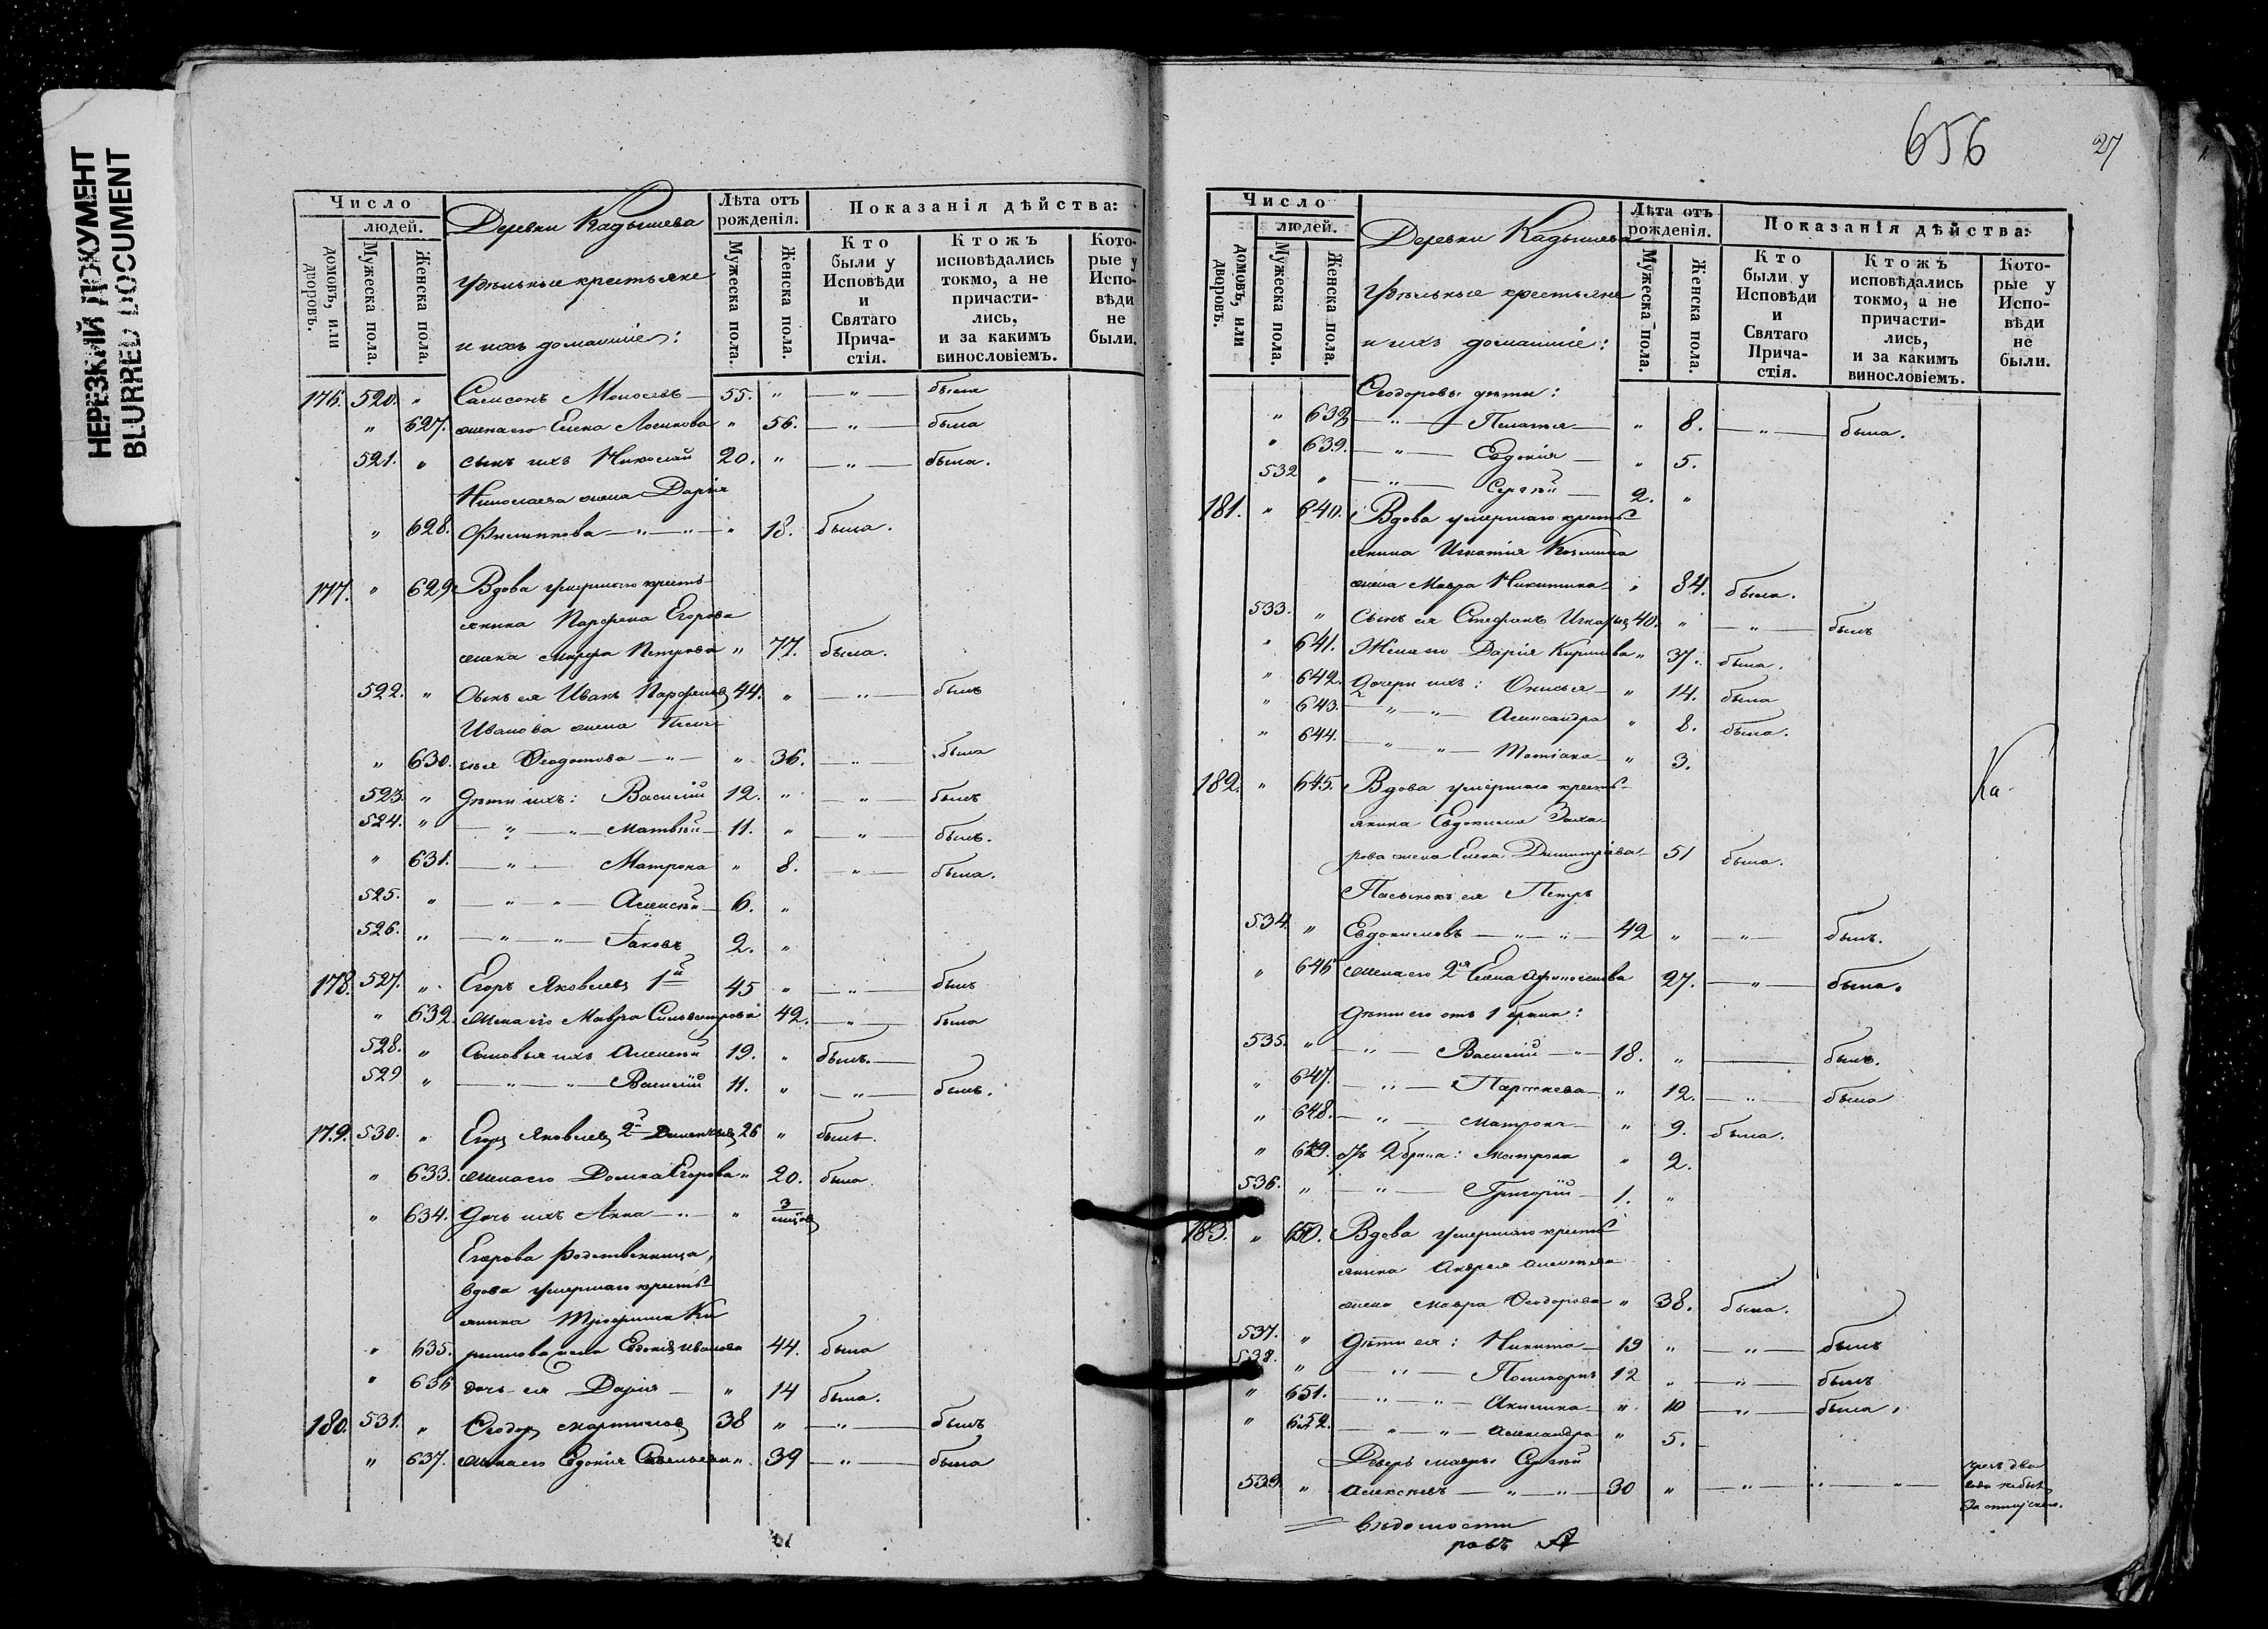 НЕРЕЗКИЙ ДОКУМЕНТ
BLURRED DOCUMENT
Число
людей.
домовъ, или дворовъ.
Мужеска пола.
Женска пола.
Деревни Кадышева
удѣльные крестьяне
и ихъ домашніе:
Лѣта отъ рожденія.
Мужеска пола.
Женска пола.
Показанія дѣйства:
Кто были у Исповѣди и Святаго Прича-стія.
Ктожъ исповѣдались токмо, а не причасти-лись, и за какимъ винословіемъ.
Кото-рые у Испо-вѣди не были.
176. 520. " Самсонъ Моисеевъ — 55. " — " — былъ
" 627. жена его Елена Логинова " 56. — " — была
521. " сынъ ихъ Николай 20. " — " — былъ.
Николаева жена Дарья
" 628. Филиппова — " — " — " 18. была.
177. " 629. Вдова умершаго кресть-
янина Парфена Егорова
жена Марфа Петрова " 77. была.
522. " Сынъ ея Иванъ Парфеновъ 44. " — " — былъ
Иванова жена Пела-
" 630. гея Ѳедотова — " — " 36. — " — была
523. " Дѣти ихъ: Василій 12. " — " — былъ
524. " — " — " — Матвѣй — 11. " — " — былъ.
" 631. — " — Матрона " 8. — " — была.
525. " — " — " — Алексѣй — 6. "
526. " — " — " — Іаковъ 2. "
178. 527. " Егоръ Яковлевъ 1й 45 " — " — былъ
" 632. жена его Мавра Сильвестрова 42. — " — была
528. " Сыновья ихъ Алексѣй 19. " былъ. —
529 " — " — " — Василій 11. " — " — былъ.
179. 530. " Егоръ Яковлевъ 2й 26 " былъ.
" 633. жена его Домна Егорова " 20. была.
" 634. Дочь ихъ Анна — " — " 3 мѣсяц.
Егорова родственница,
вдова умершаго кресть-
янина Трофима Ки
" 635. риллова жена Евдокія Иванова 44. была
" 636 дочь ея Дарія — " 14 была.
180. 531. " Ѳеодоръ Мартиновъ 38 " — " — былъ
" 637. жена его Евдокія Савельева " 39 — " — была
656
27
Число
людей.
домовъ, или дворовъ.
Мужеска пола.
Женска пола.
Деревни Кадышева
удѣльные крестьяне
и ихъ домашніе:
Лѣта отъ рожденія.
Мужеска пола.
Женска пола.
Показанія дѣйства:
Кто были у Исповѣди и Святаго Прича-стія.
Ктожъ исповѣдались токмо, а не причасти-лись, и за какимъ винословіемъ.
Кото-рые у Испо-вѣди не были.
Ѳеодоровы дѣти:
" 638 — " — Пелагея — " 8. — " — была.
" 639. — " — Евдокія — " 5.
532 " — " — Сергѣй — 2. "
181. " 640. Вдова умершаго кресть-
янина Игнатія Козмина
жена Мавра Никитина — " 84. была.
533. " Сынъ ея Стефанъ Игнатьевъ 40. " — " — былъ
" 641. Жена его Дарія Кирилова " 37. была.
" 642. Дочери ихъ: Анисья — " 14. была
" 643. — " — " — Александра " 8. была.
" 644. — " — " — Татіана — " 3.
182. " 645. Вдова умершаго кресть-
янина Евдокима Заха-
рова жена Елена Димитріева — 51 была.
Пасынокъ ея Петръ
534. " Евдокимовъ — " — " — 42 " — " — былъ.
" 646 жена его 2я Елена 27. — " — была.
Дѣти его отъ 1 брака:
535. " — " — Василій — " — 18. " — былъ.
" 647. — " — Параскева — " 12. — " — была
" 648. — " — Матрона — " 9. была.
" 649. отъ 2 брака: Матрона " 2.
536. " — " — Григорій — 1. "
Ка-
183. " 650. Вдова умершаго кресть-
янина Андрея Алексѣева
жена Мавра Ѳеодорова " 38. была.
537. " Дѣти ея: Никита — 19 " — " — былъ
538. " — " — Поликарпъ 12 " — " — былъ
" 651. — " — " — Акилина — " 10 — " — была.
" 652. — " — " — Александра " 5. —
Деверь Мавры Сергѣй
539. " Алексѣевъ — " — " — 30 " — " — " — " — чрезъ два года не былъ
вѣдомости